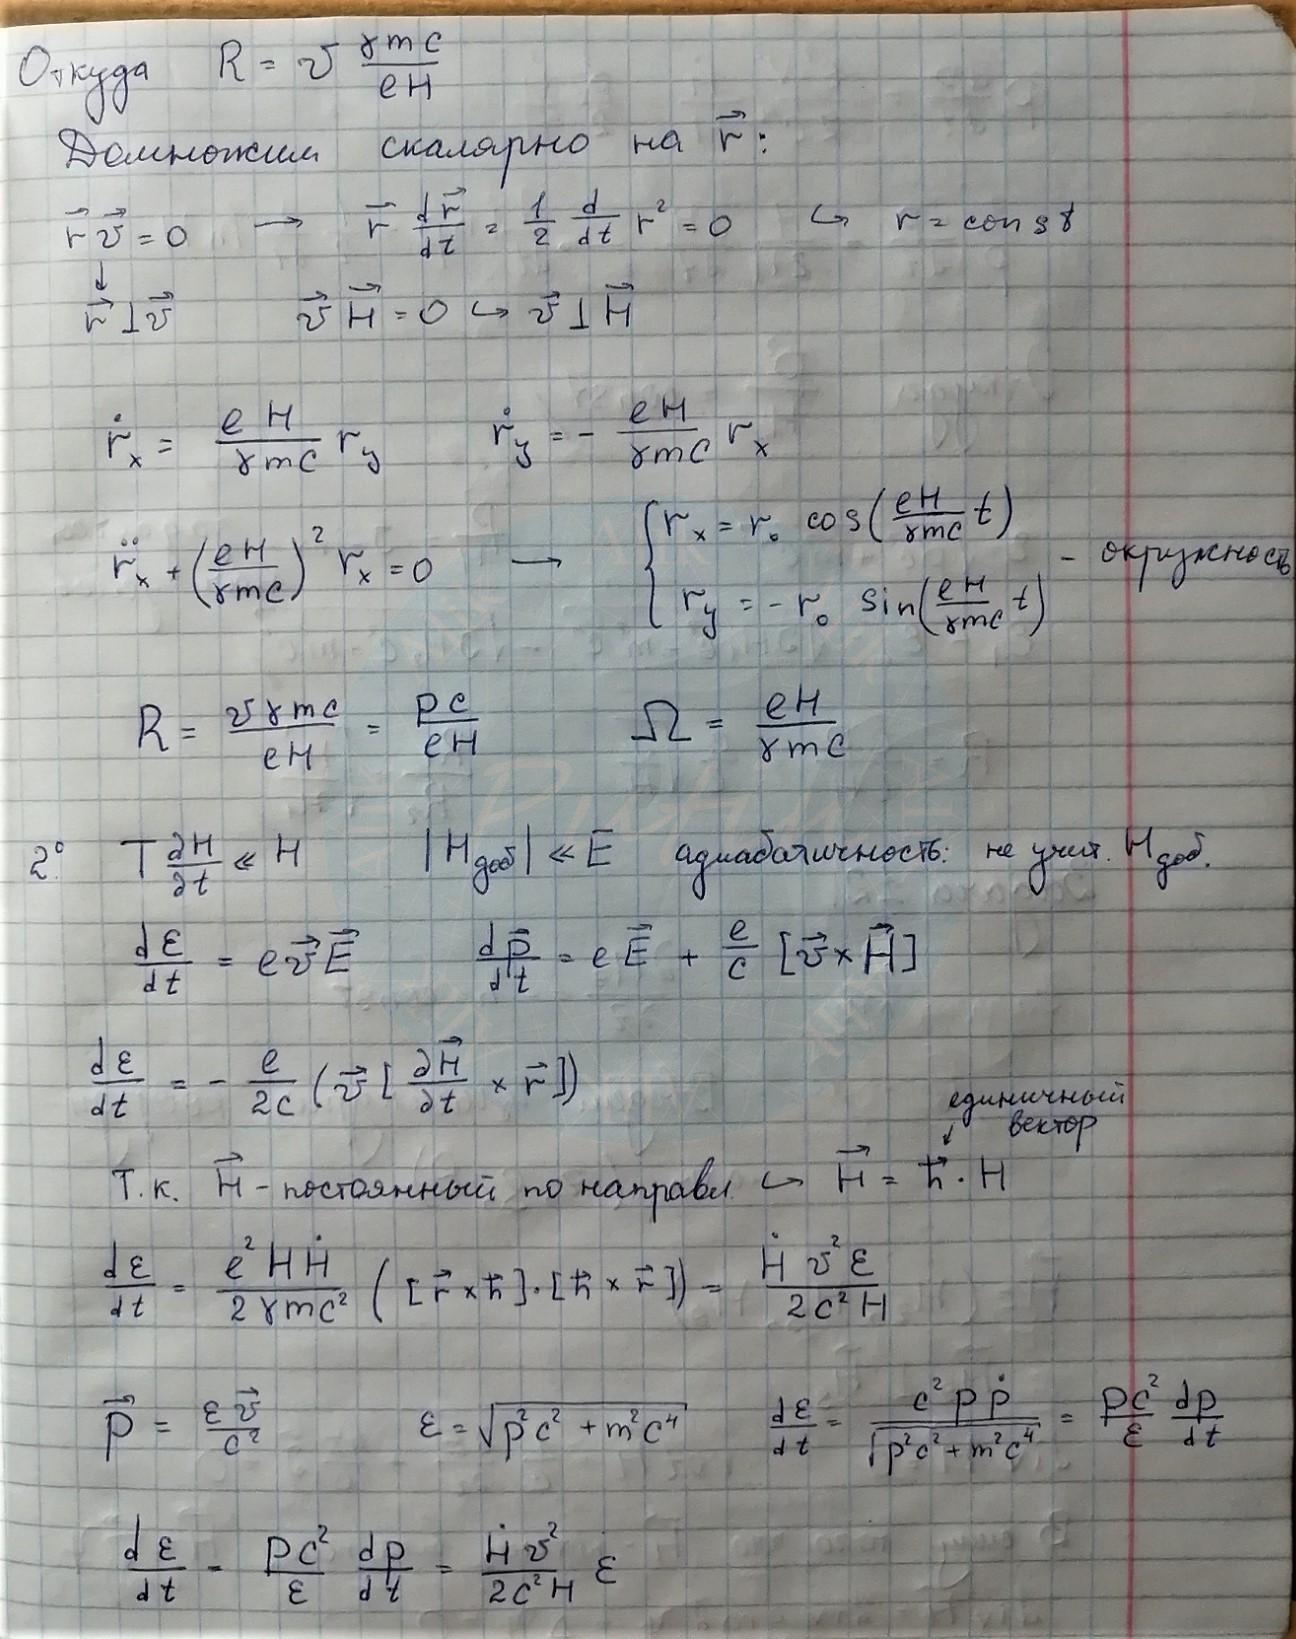 Откуда R = v γmc / eH
Домножим скалярно на r⃗:
r⃗ v⃗ = 0 → r⃗ dr⃗/dt = 1/2 d/dt r² = 0 ↪ r = const
↓
r⃗ ⊥ v⃗ v⃗ H⃗ = 0 ↪ v⃗ ⊥ H⃗
ṙₓ = eH/γmc r_y ṙ_y = - eH/γmc rₓ
r̈ₓ + (eH/γmc)² rₓ = 0 → { rₓ = r₀ cos(eH/γmc t) - окружность
r_y = - r₀ sin(eH/γmc t)
R = vγmc/eH = pc/eH Ω = eH/γmc
2° T ∂H/∂t ≪ H |H_доб| ≪ E адиабатичность: не учит. H_доб.
dε/dt = e v⃗ E⃗ dp⃗/dt = e E⃗ + e/c [v⃗ × H⃗]
dε/dt = - e/2c (v⃗ [∂H⃗/∂t × r⃗])
единичный
вектор
↓
Т.к. H⃗ - постоянный по направл ↪ H⃗ = ħ⃗ · H
dε/dt = e² H Ḣ / 2γmc² ([r⃗ × ħ] · [ħ × r⃗]) = Ḣ v² ε / 2c² H
p⃗ = ε v⃗ / c² ε = √(p²c² + m²c⁴) dε/dt = c² p ṗ / √(p²c² + m²c⁴) = pc²/ε dp/dt
dε/dt = pc²/ε dp/dt = Ḣ v² / 2c²H ε